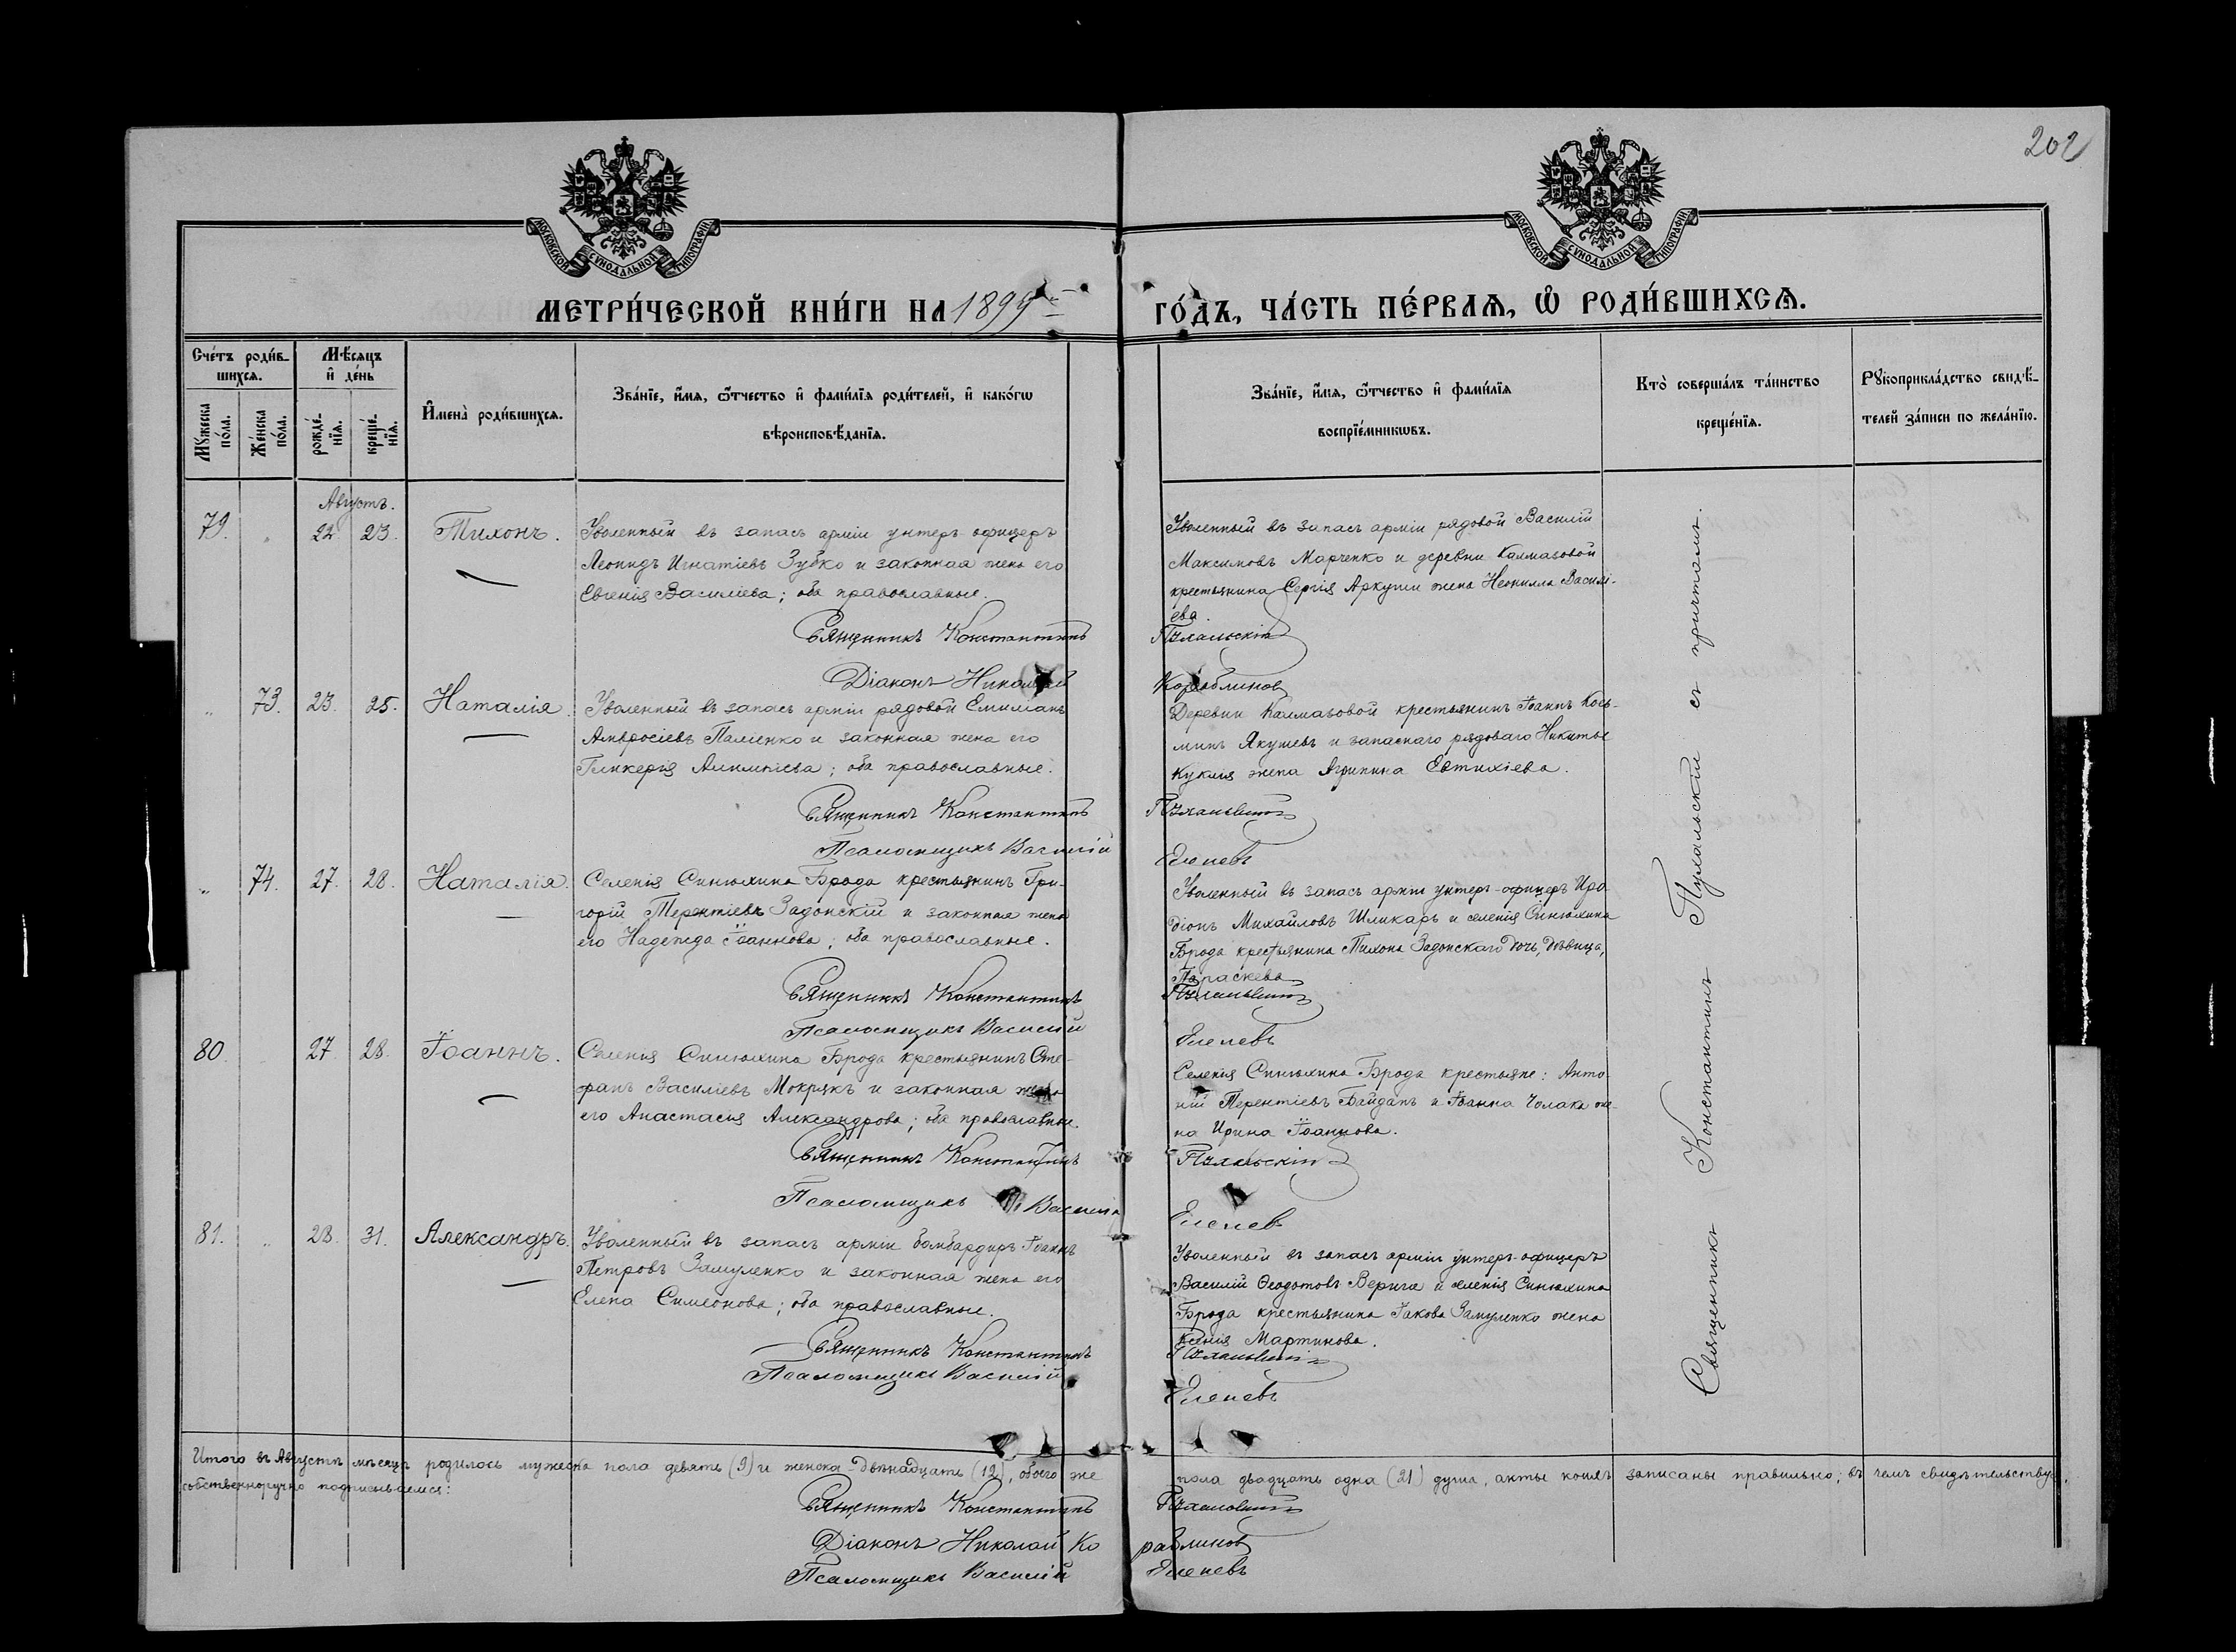 202
МОСКОВСКОЙ СѴНОДАЛЬНОЙ ТИПОГРАФІИ
МОСКОВСКОЙ СѴНОДАЛЬНОЙ ТИПОГРАФІИ
МЕТРИ́ЧЕСКОЙ КНИ́ГИ НА 1899 ГО́ДЪ, ЧА́СТЬ ПЕ́РВАѦ, Ѽ РОДИ́ВШИХСѦ.
Счéтъ роди́в-
шихсѧ.
Мꙋ́жеска по́ла.
Же́нска по́ла.
Мѣ́сѧцъ
и҆ де́нь
рожде́-
нїѧ.
креще́-
нїѧ.
И҆мена̀ роди́вшихсѧ.
Зва́нїе, и҆́мѧ, ѻ҆́тчество и҆ фами́лїѧ роди́телей, и҆ како́гѡ
вѣроисповѣ́данїѧ.
Зва́нїе, и҆́мѧ, ѻ҆́тчество и҆ фами́лїѧ
воспрїе́мникѡвъ.
Кто̀ соверша́лъ та́инство
креще́нїѧ.
Рꙋкоприкла́дство свидѣ́-
телей за́писи по жела́нїю.
Августъ.
79. " 22. 23. Тихонъ.
Уволенный въ запасъ арміи унтеръ-офицеръ
Леонидъ Игнатіевъ Зубко и законная жена его
Евгенія Василіева; оба православные.
Священникъ Константинъ
Діаконъ Николай
Уволенный въ запасъ арміи рядовой Василій
Максимовъ Марченко и деревни Калмазовой
крестьянина Сергія Аркуши жена Неонилла Василі-
ева.
Пухальскій
Кораблиновъ
" 73. 23. 25. Наталія.
Уволенный въ запасъ арміи рядовой Емиліанъ
Амвросіевъ Паліенко и законная жена его
Гликерія Алимпіева; оба православные.
Священникъ Константинъ
Псаломщикъ Василій
Деревни Калмазовой крестьянинъ Іоаннъ Кось-
минъ Якушевъ и запаснаго рядоваго Никиты
Куклія жена Агрипина Евтихіева.
Пухальскій
Елепевъ
" 74. 27. 28. Наталія.
Селенія Синюхина Брода крестьянинъ Гри-
горій Терентіевъ Задонскій и законная жена
его Надежда Іоаннова; оба православные.
Священникъ Константинъ
Псаломщикъ Василій
Уволенный въ запасъ арміи унтеръ-офицеръ Иро-
діонъ Михайловъ Шликарь и селенія Синюхина
Брода крестьянина Тихона Задонскаго дочь, девица,
Параскева
Пухальскій
Елепевъ
80. 27. 28. Іоаннъ.
Селенія Синюхина Брода крестьянинъ Сте-
фанъ Василіевъ Мокрякъ и законная жена
его Анастасія Александрова; оба православные.
Священникъ Константинъ
Псаломщикъ Василій
Селенія Синюхина Брода крестьяне: Анто-
ній Терентіевъ Байданъ и Іоанна Чолака же-
на Ирина Іоаннова.
Пухальскій
Елепевъ
81. " 28. 31. Александръ.
Уволенный въ запасъ арміи бомбардиръ Іоаннъ
Петровъ Замуленко и законная жена его
Елена Симеонова; оба православные.
Священникъ Константинъ
Псаломщикъ Василій
Уволенный въ запасъ арміи унтеръ-офицеръ
Василій Ѳеодотовъ Верига и селенія Синюхина
Брода крестьянина Іакова Замуленко жена
Ксенія Мартинова.
Пухальскій
Елепевъ
Священникъ Константинъ Пухальскій съ причтомъ.
Итого въ Августѣ мѣсяцѣ родилось мужеска пола девять (9) и женска двѣнадцать (12), обоего же пола двадцать одна (21) душа, акты коихъ записаны правильно; въ чемъ свидѣтельствуя,
собственноручно подписываемся:
Священникъ Константинъ Пухальскій
Діаконъ Николай Кораблиновъ
Псаломщикъ Василій Елепевъ